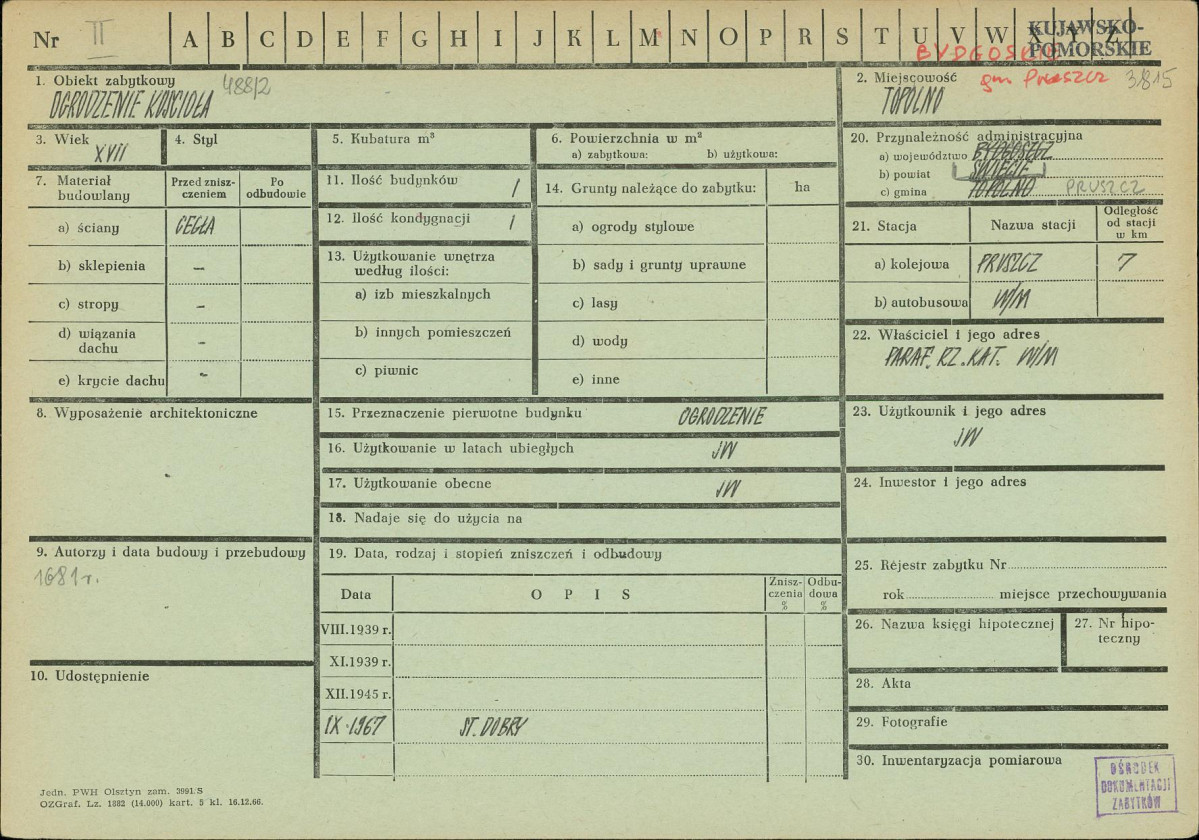 Nr II A B C D E F G H I J K L M N O P R S T U V W X Y Z
KUJAWSKO-
POMORSKIE
BYDGOSKIE
gm. Pruszcz 3815
1. Obiekt zabytkowy 488/2
OGRODZENIE KOŚCIOŁA
2. Miejscowość
TOPOLNO
3. Wiek
XVII
4. Styl
5. Kubatura m³
6. Powierzchnia w m²
a) zabytkowa: b) użytkowa:
20. Przynależność administracyjna
a) województwo BYDGOSZCZ
b) powiat ŚWIECIE
c) gmina TOPOLNO PRUSZCZ
7. Materiał
budowlany
Przed znisz-
czeniem
Po
odbudowie
a) ściany CEGŁA
b) sklepienia –
c) stropy –
d) wiązania
dachu –
e) krycie dachu -
11. Ilość budynków 1
12. Ilość kondygnacji 1
13. Użytkowanie wnętrza
według ilości:
a) izb mieszkalnych
b) innych pomieszczeń
c) piwnic
14. Grunty należące do zabytku: ha
a) ogrody stylowe
b) sady i grunty uprawne
c) lasy
d) wody
e) inne
21. Stacja Nazwa stacji
Odległość
od stacji
w km
a) kolejowa PRUSZCZ 7
b) autobusowa W/M
22. Właściciel i jego adres
PARAF. RZ. KAT. W/M
8. Wyposażenie architektoniczne
15. Przeznaczenie pierwotne budynku OGRODZENIE
16. Użytkowanie w latach ubiegłych JW
17. Użytkowanie obecne JW
18. Nadaje się do użycia na
23. Użytkownik i jego adres
JW
24. Inwestor i jego adres
9. Autorzy i data budowy i przebudowy
1681 r.
19. Data, rodzaj i stopień zniszczeń i odbudowy
Data O P I S
Znisz-
czenia
%
Odbu-
dowa
%
VIII.1939 r.
XI.1939 r.
XII.1945 r.
IX.1967 ST. DOBRY
25. Rejestr zabytku Nr
rok miejsce przechowywania
26. Nazwa księgi hipotecznej
27. Nr hipo-
teczny
10. Udostępnienie
28. Akta
29. Fotografie
30. Inwentaryzacja pomiarowa
OŚRODEK
DOKUMENTACJI
ZABYTKÓW
Jedn. PWH Olsztyn zam. 3991/S
OZGraf. Lz. 1882 (14.000) kart. 5 kl. 16.12.66.